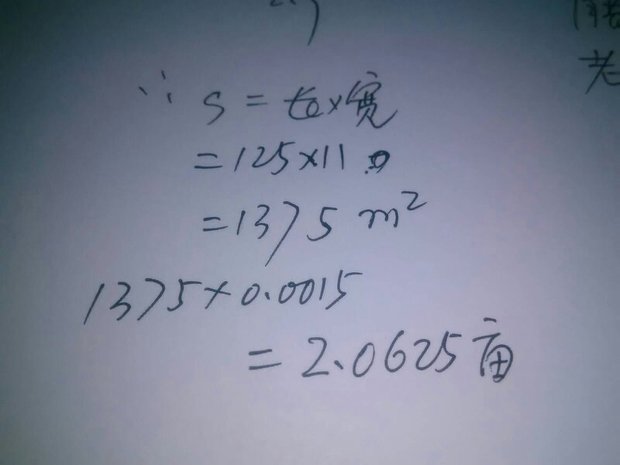 ∵ S = 长×宽
=125×11.0
=1375 m²
1375×0.0015
=2.0625亩